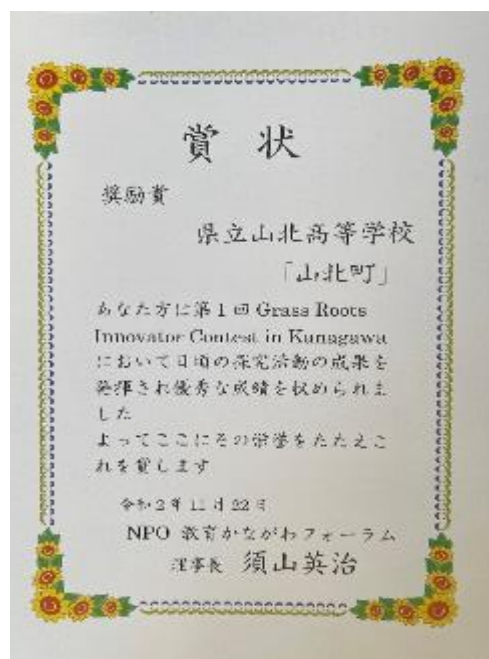 賞 状
奨励賞
県立山北高等学校
「山北町」
あなた方は第1回 Grass Roots
Innovator Contest in Kanagawa
において日頃の探究活動の成果を
発揮され優秀な成績を収められま
した
よってここにその栄誉をたたえこ
れを賞します
令和2年11月22日
NPO 教育かながわフォーラム
理事長 須山英治